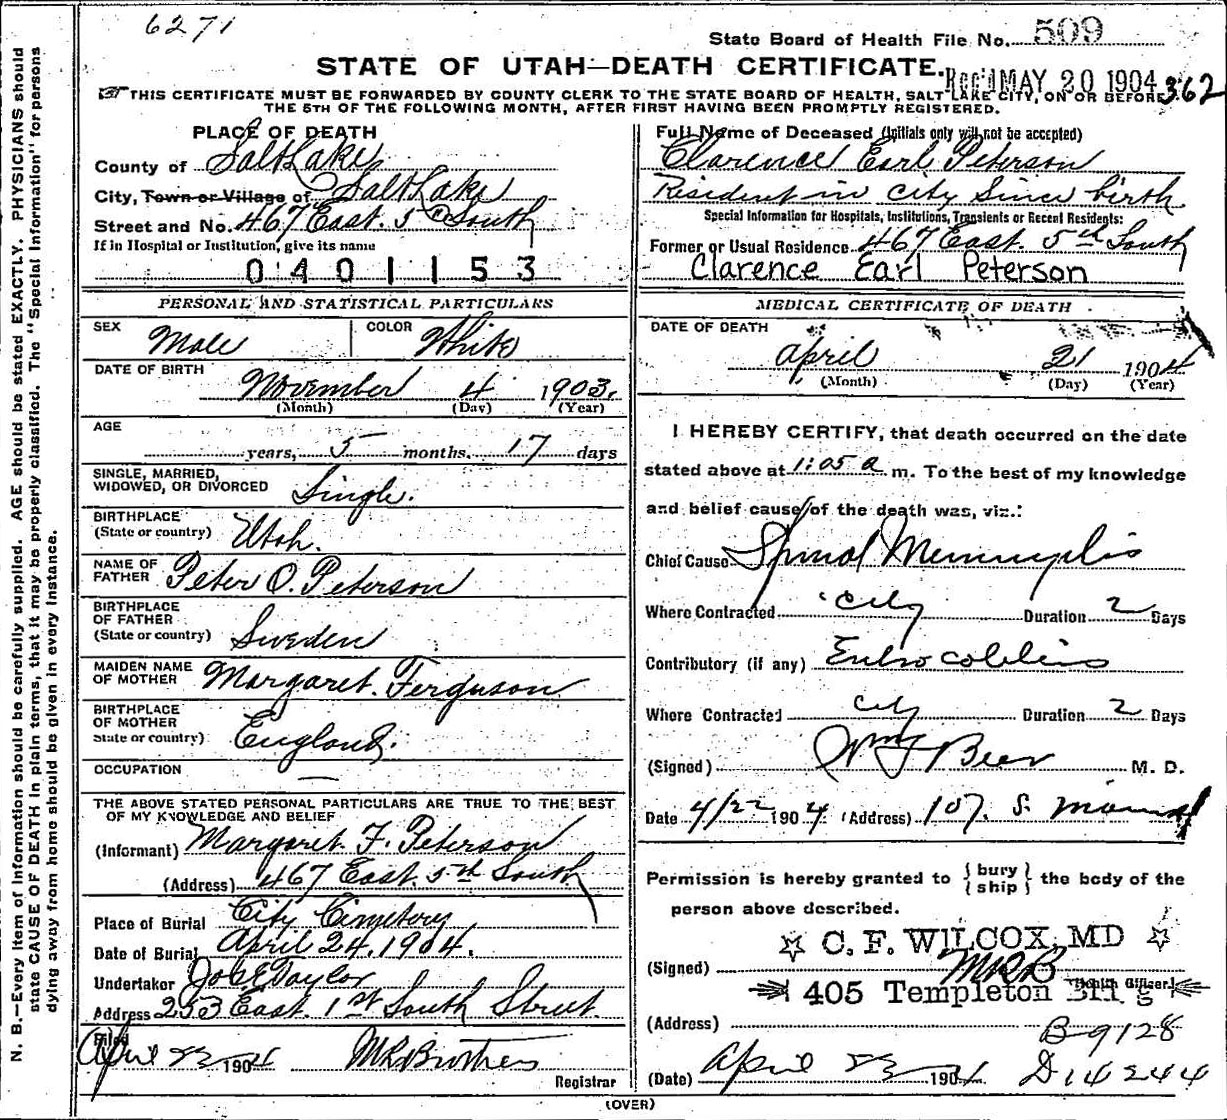 6271
State Board of Health File No. 509
STATE OF UTAH—DEATH CERTIFICATE.
Rec'd MAY 20 1904
362
THIS CERTIFICATE MUST BE FORWARDED BY COUNTY CLERK TO THE STATE BOARD OF HEALTH, SALT LAKE CITY, ON OR BEFORE
THE 5TH OF THE FOLLOWING MONTH, AFTER FIRST HAVING BEEN PROMPTLY REGISTERED.
N. B.—Every item of information should be carefully supplied. AGE should be stated EXACTLY. PHYSICIANS should
state CAUSE OF DEATH in plain terms, that it may be properly classified. The "Special Information" for persons
dying away from home should be given in every instance.
PLACE OF DEATH
County of Salt Lake
City, Town or Village of Salt Lake
Street and No. 467 East. 5th South
If in Hospital or Institution, give its name
0401153
PERSONAL AND STATISTICAL PARTICULARS
SEX Male COLOR White
DATE OF BIRTH
November 4 1903.
(Month) (Day) (Year)
AGE
years, 5 months. 17 days
SINGLE, MARRIED,
WIDOWED, OR DIVORCED Single.
BIRTHPLACE
(State or country) Utah.
NAME OF
FATHER Peter O. Peterson
BIRTHPLACE
OF FATHER
(State or country) Sweden
MAIDEN NAME
OF MOTHER Margaret. Ferguson
BIRTHPLACE
OF MOTHER
State or country) England.
OCCUPATION —
THE ABOVE STATED PERSONAL PARTICULARS ARE TRUE TO THE BEST
OF MY KNOWLEDGE AND BELIEF
(Informant) Margaret. F. Peterson
(Address) 467 East. 5th South
Place of Burial City Cemetery
Date of Burial April 24, 1904.
Undertaker Jos E Taylor
Address 253 East. 1st South Street.
Filed
April 23 1904 M R Brothers
Registrar
Full Name of Deceased (Initials only will not be accepted)
Clarence Earl Peterson
Resident in city Since birth
Special Information for Hospitals, Institutions, Transients or Recent Residents:
Former or Usual Residence 467 East. 5th South
Clarence Earl Peterson
MEDICAL CERTIFICATE OF DEATH
DATE OF DEATH
April 21 1904
(Month) (Day) (Year)
I HEREBY CERTIFY, that death occurred on the date
stated above at 1:05 a m. To the best of my knowledge
and belief cause of the death was, viz.:
Chief Cause Spinal Meningitis
Where Contracted city Duration 2 Days
Contributory (if any) Entro colitis
Where Contracted city Duration 2 Days
(Signed) Wm F Beer M. D.
Date 4/22 1904 (Address) 107. S. Main
Permission is hereby granted to {bury
ship} the body of the
person above described.
C. F. WILCOX, MD
(Signed) MRB
Health Officer.
405 Templeton Bldg
(Address)
B 9128
(Date) April 23 1904 D 14244
(OVER)